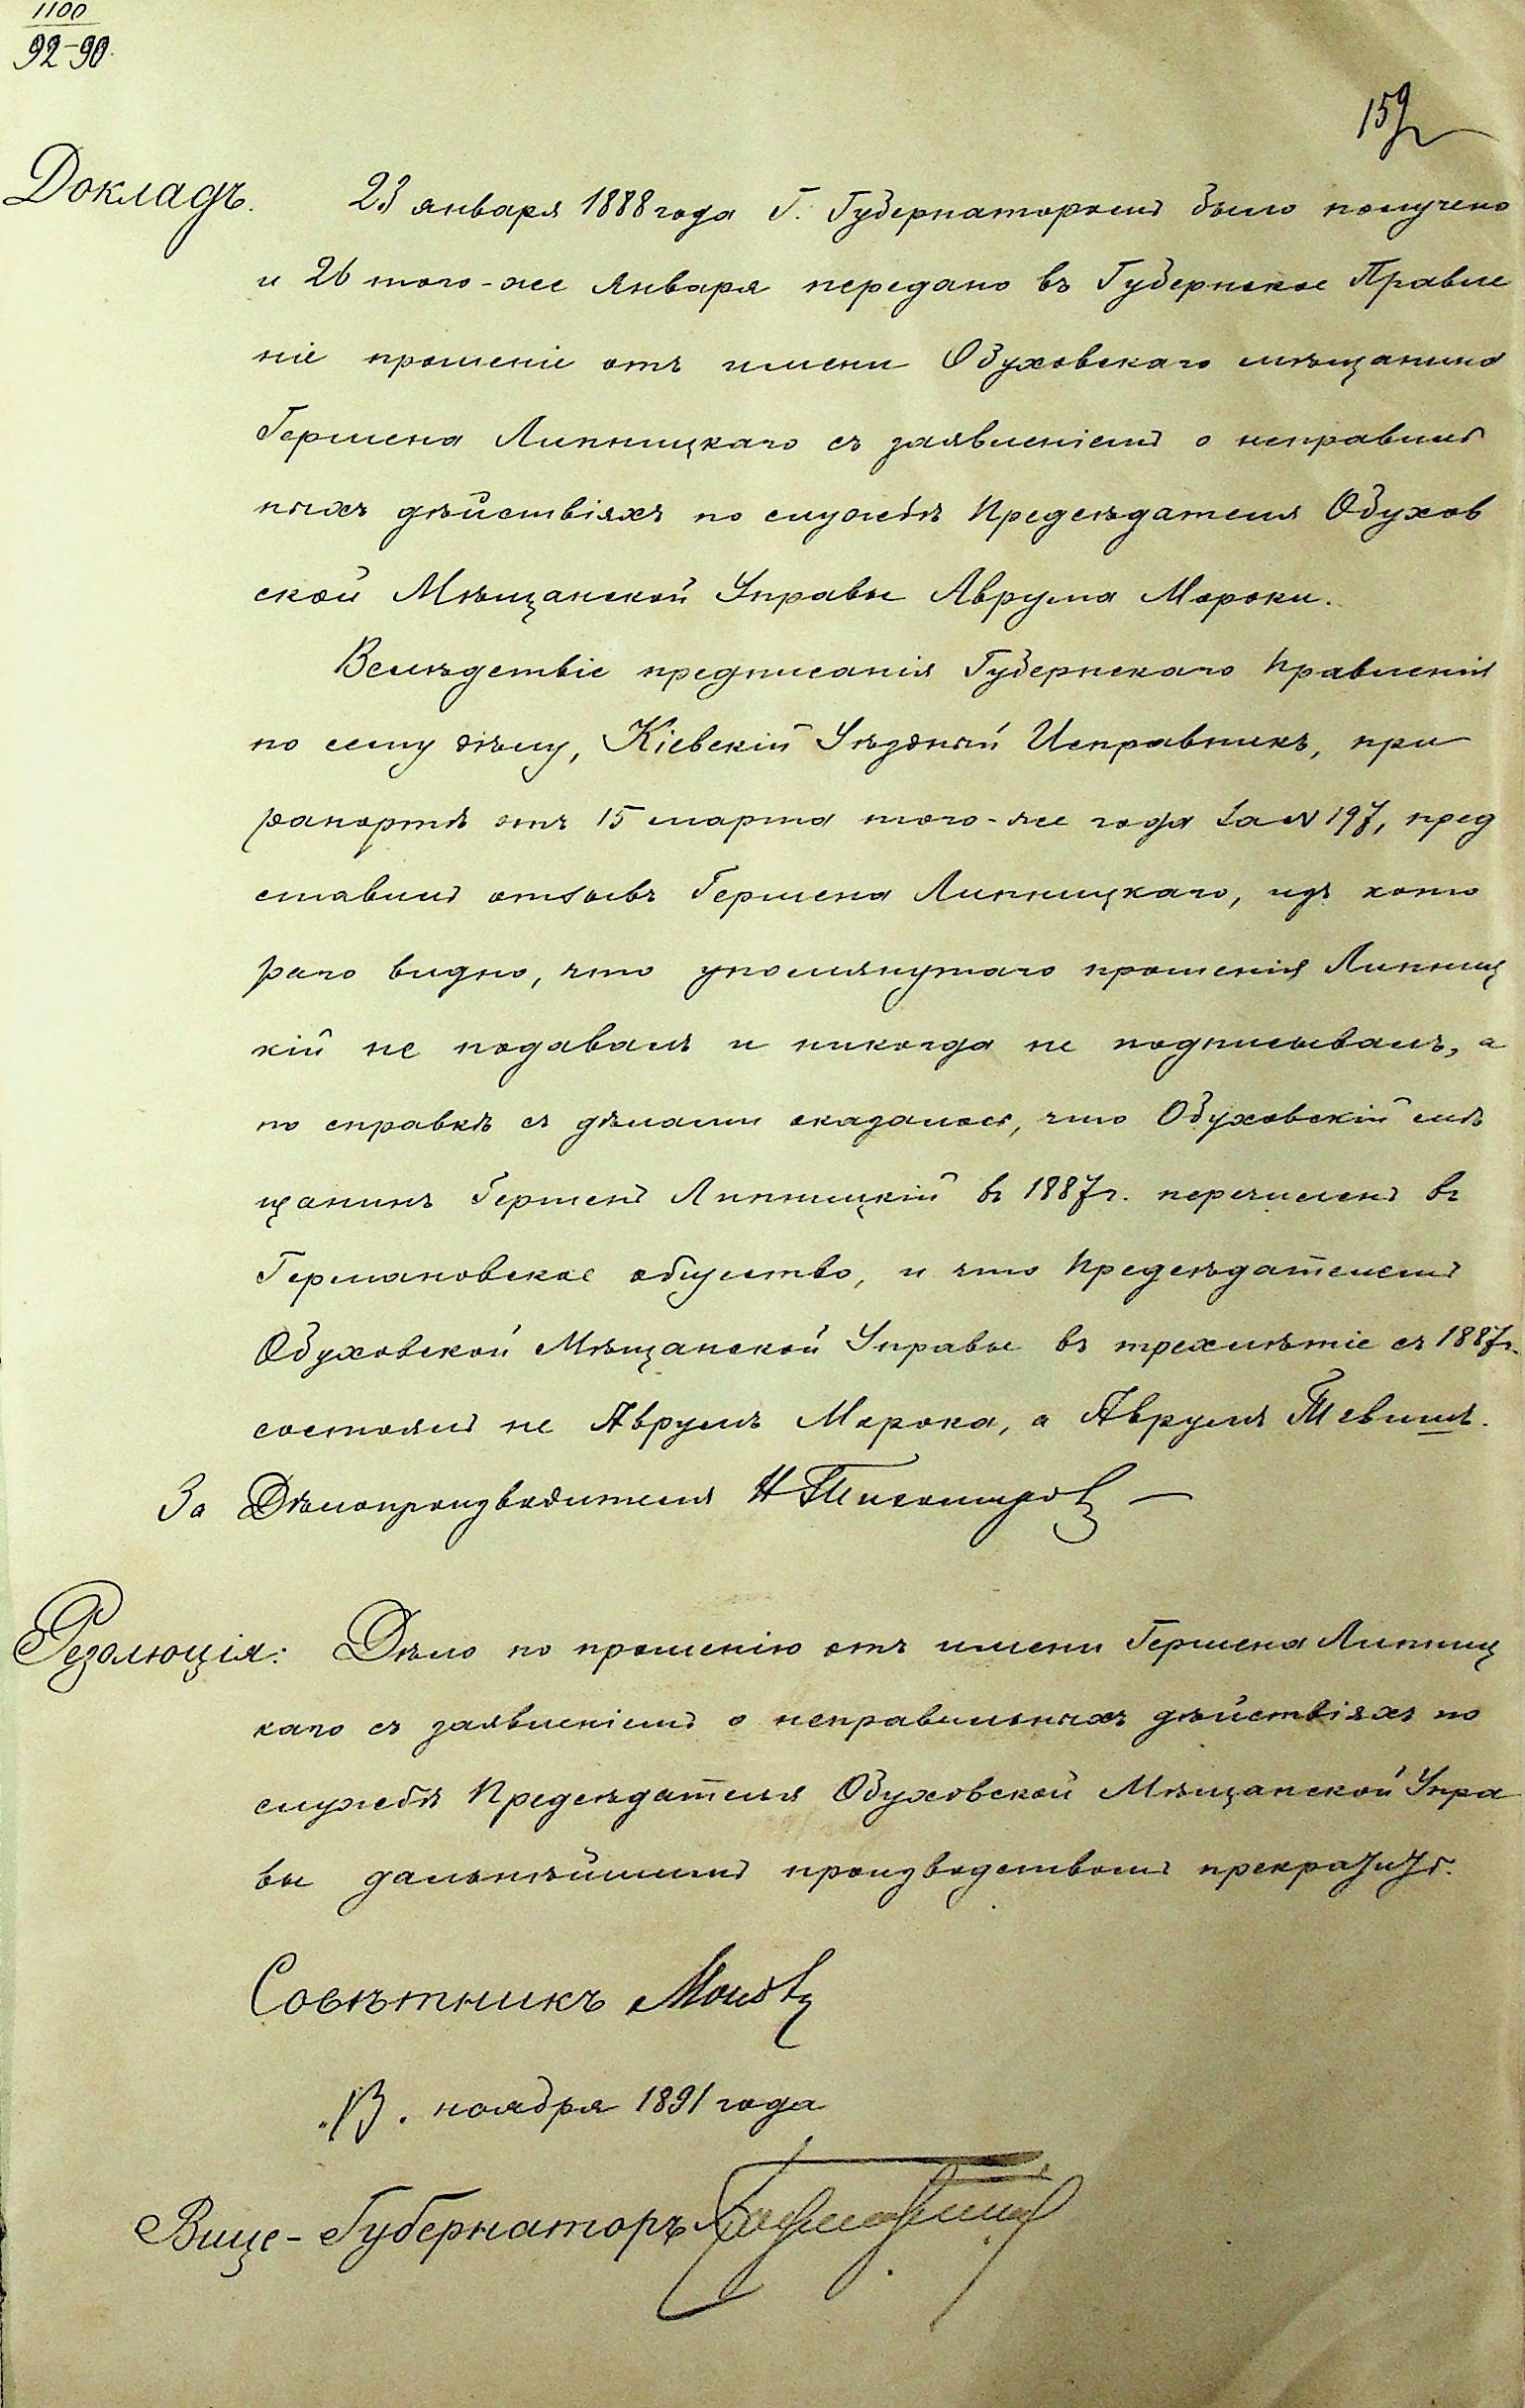 1100
92-90.
159
Докладъ. 23 января 1888 года Г. Губернаторомъ было получено
и 26 того-же Января передано въ Губернское Правле
ніе прошеніе отъ имени Обуховскаго мѣщанина
Гершена Липницкаго съ заявленіемъ о неправиль
ныхъ дѣйствіяхъ по службѣ Предсѣдателя Обухов
ской Мѣщанской Управы Аврума Мороки.
Вслѣдствіе предписанія Губернскаго Правленія
по сему дѣлу, Кіевскій Уѣздный Исправникъ, при
рапортѣ отъ 15 марта того-же года за № 197, пред
ставилъ отзывъ Гершена Липницкаго, изъ кото
раго видно, что упомянутаго прошенія Липниц
кій не подавалъ и никогда не подписывалъ, а
по справкѣ съ дѣлами оказалось, что Обуховскій мѣ
щанинъ Гершенъ Липницкій въ 1887 г. перечисленъ въ
Германовское общество, и что Предсѣдателемъ
Обуховской Мѣщанской Управы въ трехлѣтіе съ 1887 г.
состоялъ не Аврумъ Морока, а Аврумъ Тевишъ.
За Дѣлопроизводителя Н
Резолюція: Дѣло по прошенію отъ имени Гершена Липниц
каго съ заявленіемъ о неправильныхъ дѣйствіяхъ по
службѣ Предсѣдателя Обуховской Мѣщанской Упра
вы дальнѣйшимъ производствомъ прекратить.
Совѣтникъ
"13" ноября 1891 года
Вице-Губернаторъ